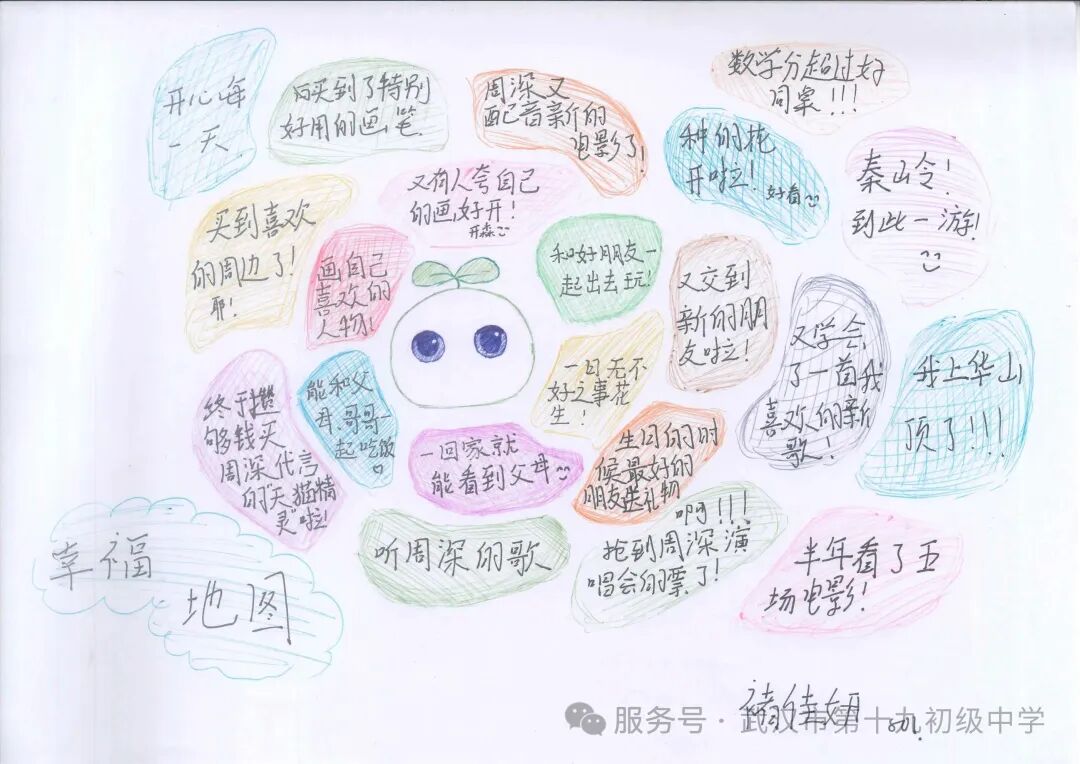 开心每
一天
购买到了特别
好用的画笔
周深又
配音新的
电影了!
数学分超过好
同桌!!!
种的花
开啦!
好看
秦岭!
到此一游!
又有人夸自己
的画好开!
开森
买到喜欢
的周边了!
耶!
画自己
喜欢的
人物!
和好朋友一
起出去玩!
又交到
新的朋
友啦!
又学会
了一首我
喜欢的新
歌!
我上华山
顶了!!!
终于攒
够钱买
周深代言
的“天猫精
灵”啦!
能和父
母.哥哥一
起吃饭
一日无不
好之事花
生!
一回家就
能看到父母
生日的时
候最好的
朋友送礼物
听周深的歌
啊!!!
抢到周深演
唱会的票了!
半年看了五
场电影!
幸福
地图
褚佳妍
服务号·武汉市第十九初级中学